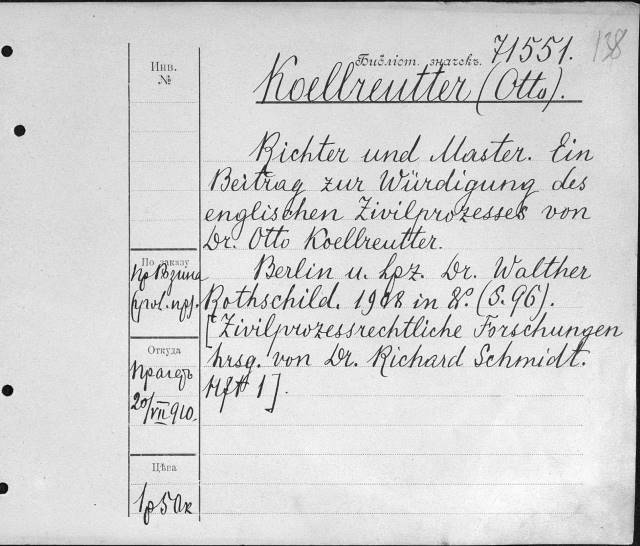 71551.
138
Инв.
№
Библіот. значекъ.
Koellreutter (Otto).
Richter und Master. Ein
Beitrag zur Würdigung des
englischen Zivilprozesses von
Dr. Otto Koellreutter.
По заказу
пр.
Berlin u. Lpz. Dr. Walther
Rothschild. 1908 in 8º. (S. 96).
[Zivilprozessrechtliche Forschungen
Откуда
hrsg. von Dr. Richard Schmidt.
Hft 1].
20/VII 910.
Цѣна
1р 50к